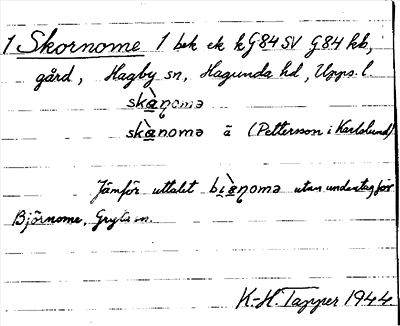 1 Skornome 1 bek ek kG84SV G84 kb,
gård, Hagby sn, Hagunda hd, Upps. l.
skànomə
skanomə ä (Petterson i Karlslund)
Jämför uttalet biànomə utan undantag för
Björnome, Gryta sn.
K-H. Tapper 1944